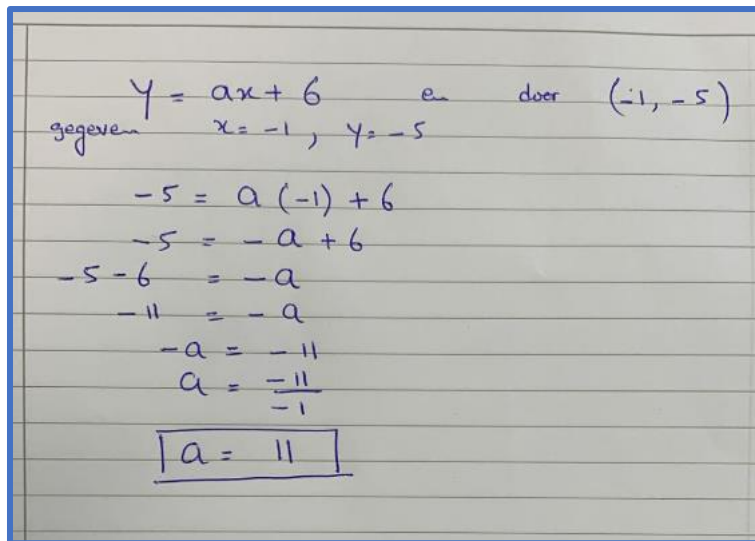 y = ax + 6 en doer (-1, -5)
gegeven x = -1, y = -5
-5 = a(-1) + 6
-5 = -a + 6
-5 - 6 = -a
-11 = -a
-a = -11
a = -11/-1
a = 11